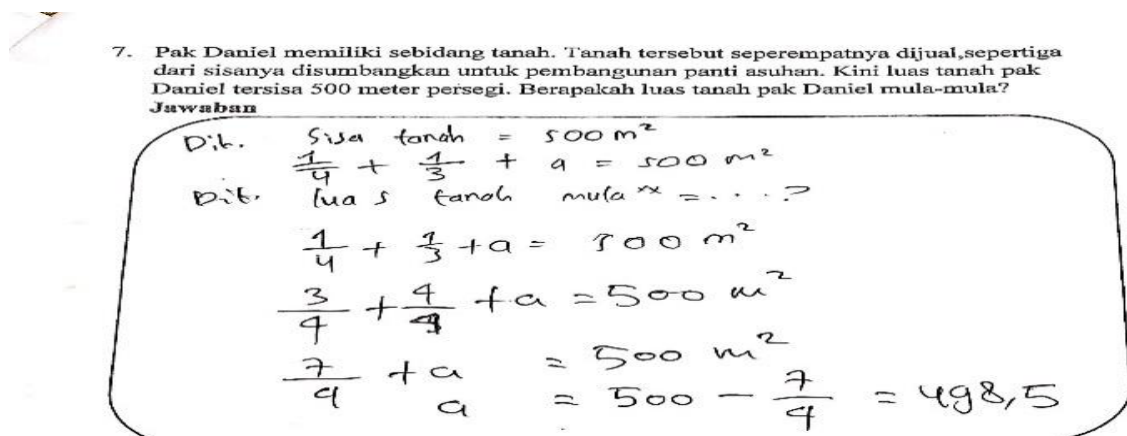 7. Pak Daniel memiliki sebidang tanah. Tanah tersebut seperempatnya dijual,sepertiga
dari sisanya disumbangkan untuk pembangunan panti asuhan. Kini luas tanah pak
Daniel tersisa 500 meter persegi. Berapakah luas tanah pak Daniel mula-mula?
Jawaban
Dit. Sisa tanah = 500 m²
1/4 + 1/3 + a = 500 m²
Dit. luas tanah mula xx = . . . ?
1/4 + 1/3 + a = 500 m²
3/9 + 4/9 + a = 500 m²
7/9 + a = 500 m²
a = 500 - 7/9 = 498,5